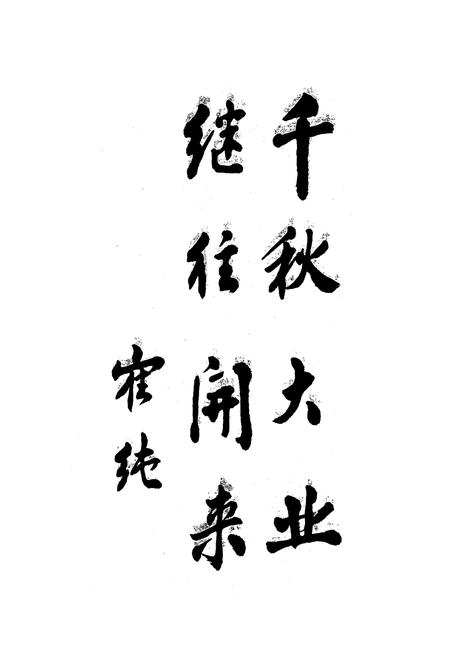 千秋大业
继往開来
寉纯